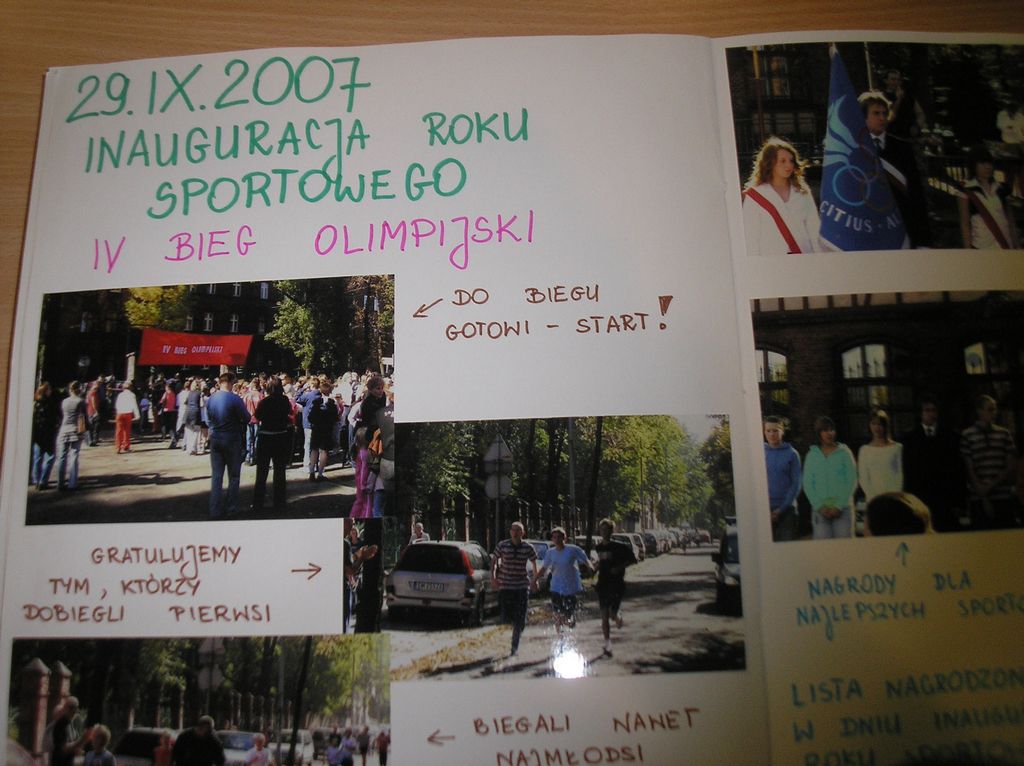 29.IX.2007
INAUGURACJA ROKU
SPORTOWEGO
IV BIEG OLIMPIJSKI
← DO BIEGU
GOTOWI - START!
IV BIEG OLIMPIJSKI
GRATULUJEMY
TYM, KTÓRZY →
DOBIEGLI PIERWSI
← BIEGALI NAWET
NAJMŁODSI
CITIUS - AL
NAGRODY DLA
NAJLEPSZYCH SPORTO
LISTA NAGRODZON
W DNIU INAUGU
ROKU SPORTOW